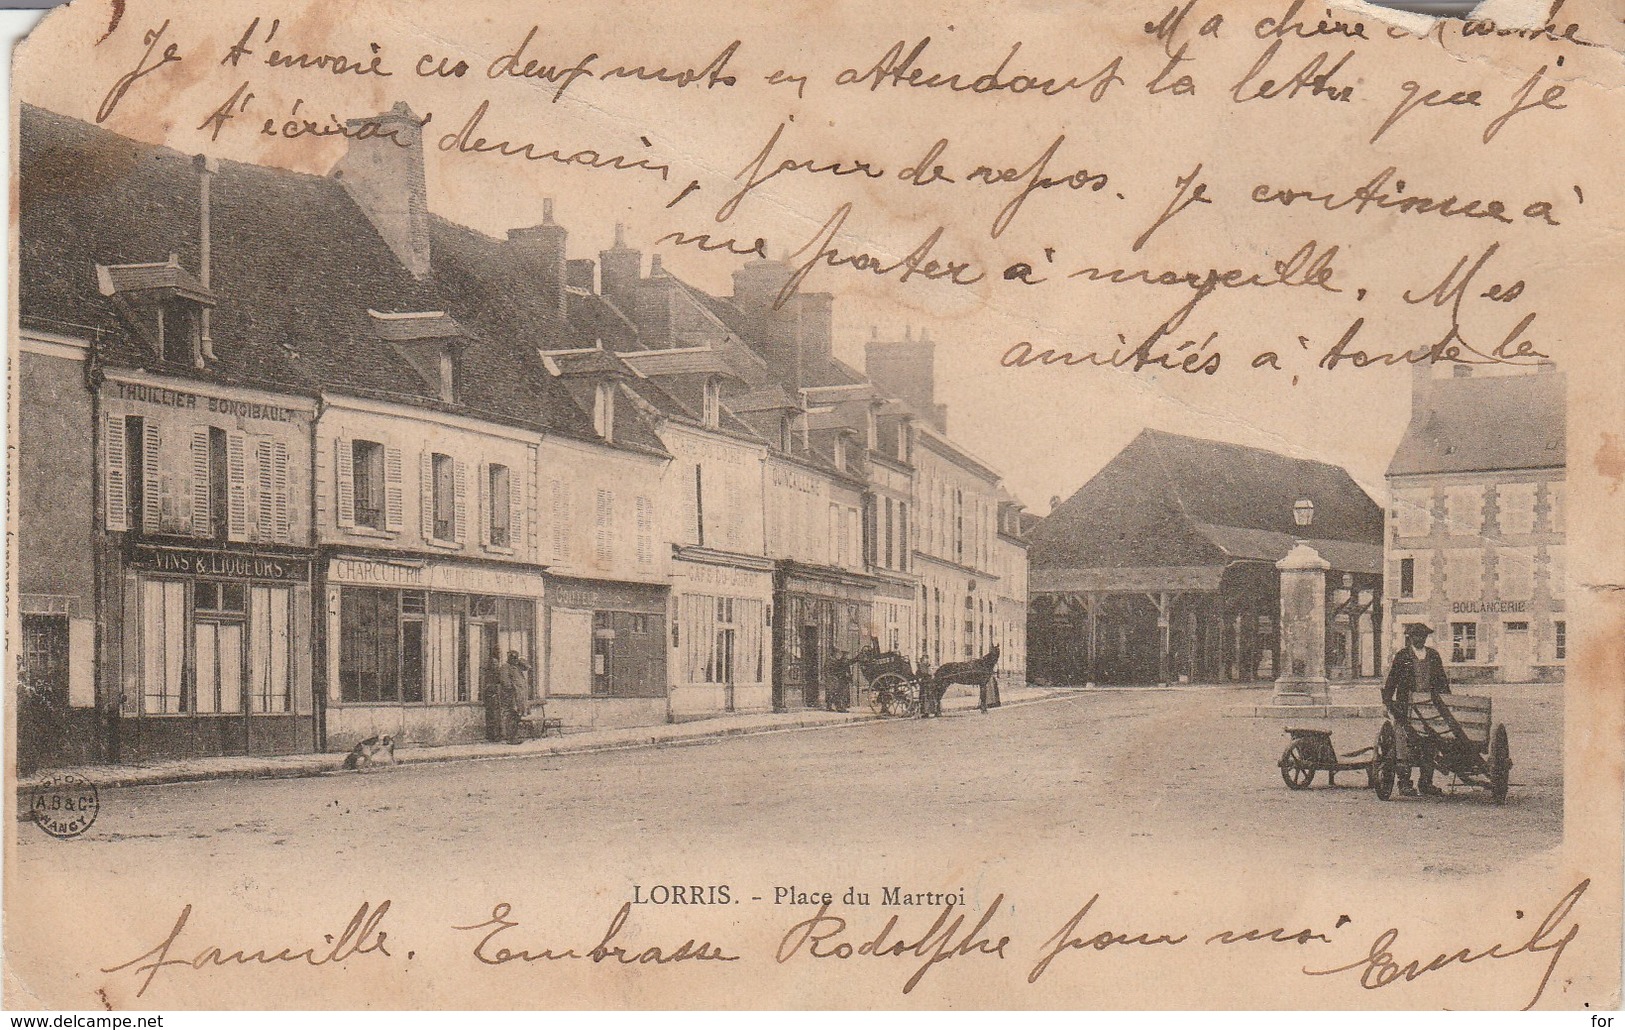 Ma chère
Je t'envoie ces deux mots en attendant la lettre que je
t'écrirai demain, jour de repos. Je continue à
me porter à merveille. Mes
amitiés à toute la
THUILLIER
QUINCAILLERIE
VINS & LIQUEURS
CHARCUTERIE
BOULANGERIE
PHOT
A.B & Cie
NANCY
LORRIS. - Place du Martroi
famille. Embrasse Rodolphe pour moi
Emile
www.delcampe.net
for